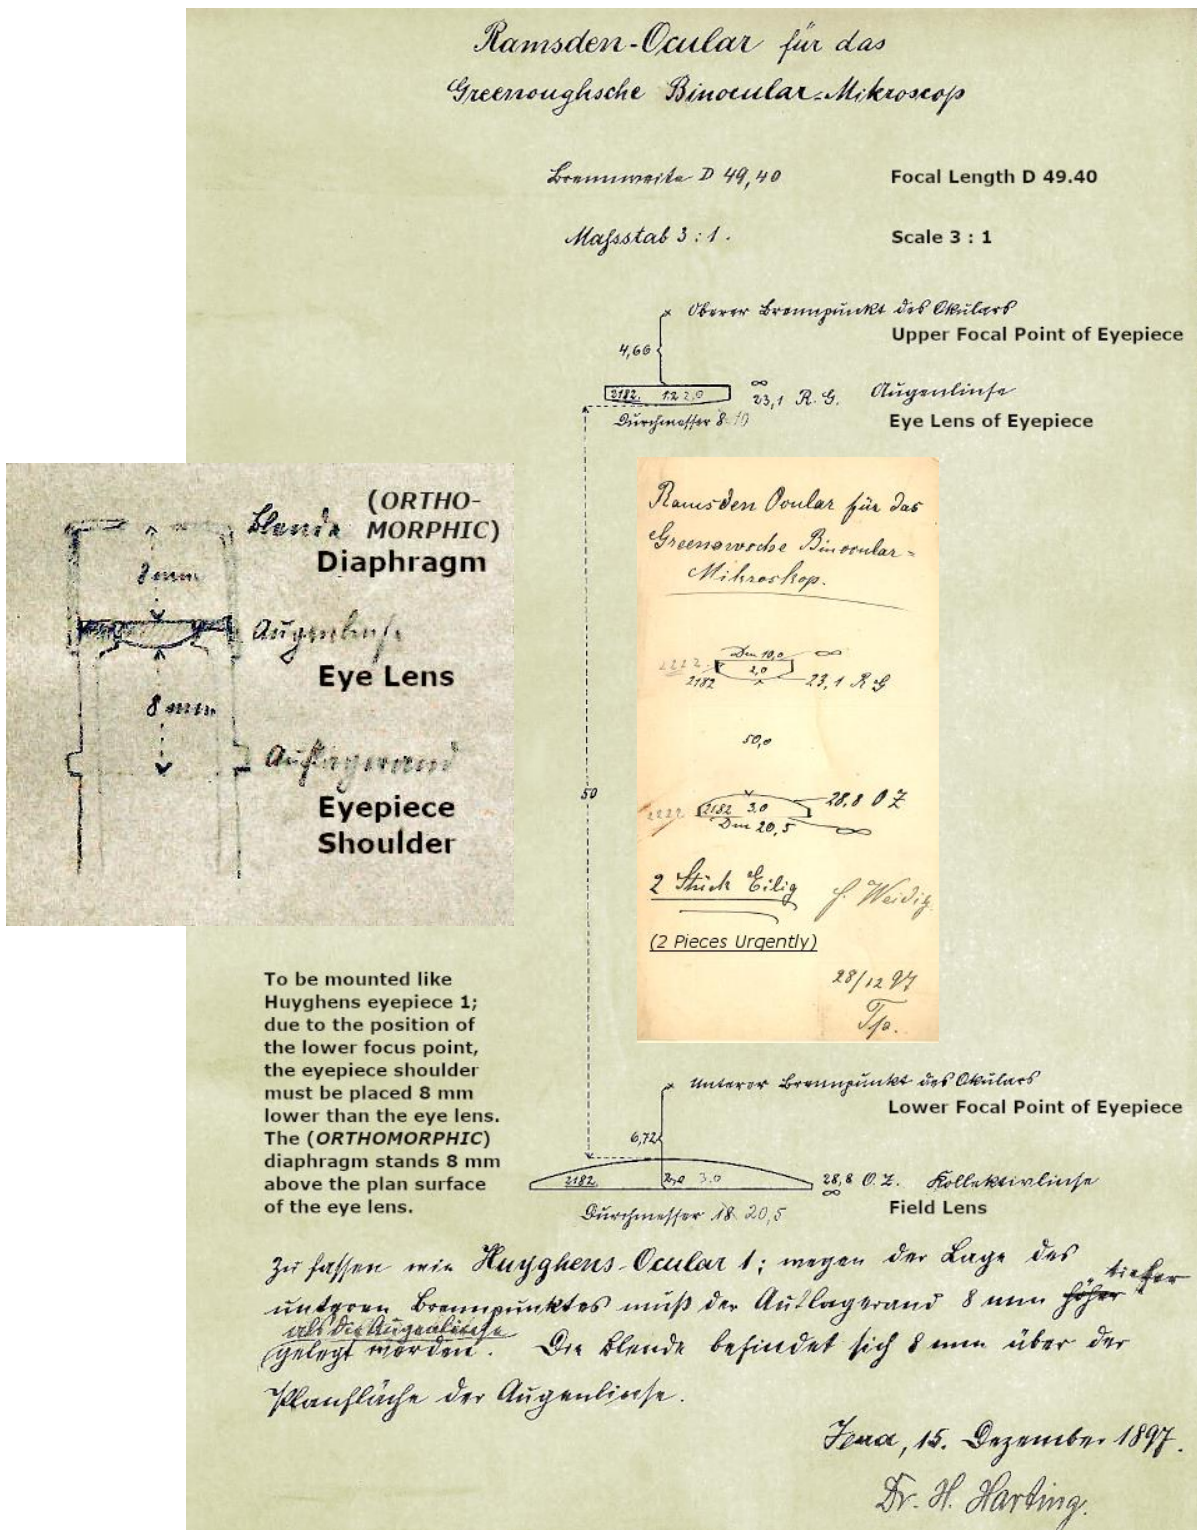 Ramsden-Ocular für das
Greenoughsche Binocular-Mikroscop
Brennweite D 49,40
Focal Length D 49.40
Maßstab 3:1.
Scale 3 : 1
Oberer Brennpunkt des Okulars
Upper Focal Point of Eyepiece
4,66
2182. 1.2 2,0
∞
23,1 R. G. Augenlinse
Eye Lens of Eyepiece
Durchmesser 8 10
(ORTHO-
MORPHIC)
Blende
Diaphragm
8 mm
Augenlinse
Eye Lens
8 mm
Auflagerand
Eyepiece
Shoulder
50
Ramsden Ocular für das
Binocular-
Mikroskop.
Dm 10,0 ∞
2222
2182 2,0 23,1 R G
50,0
2222 2182 3,0 28,8 O Z
Dm 20,5 ∞
2 Stück Eilig
Weidig
(2 Pieces Urgently)
28/12 97
To be mounted like
Huyghens eyepiece 1;
due to the position of
the lower focus point,
the eyepiece shoulder
must be placed 8 mm
lower than the eye lens.
The (ORTHOMORPHIC)
diaphragm stands 8 mm
above the plan surface
of the eye lens.
Unterer Brennpunkt des Okulars
Lower Focal Point of Eyepiece
6,72
2182. 2,0 3.0
28,8 O. Z. Kollektivlinse
∞
Field Lens
Durchmesser 18 20,5
Zu fassen wie Huyghens-Ocular 1; wegen der Lage des
unteren Brennpunktes muß der Auflagerand 8 mm höher tiefer
als die Augenlinse
gelegt werden. Die Blende befindet sich 8 mm über der
Planfläche der Augenlinse.
Jena, 15. Dezember 1897.
Dr. H. Harting.